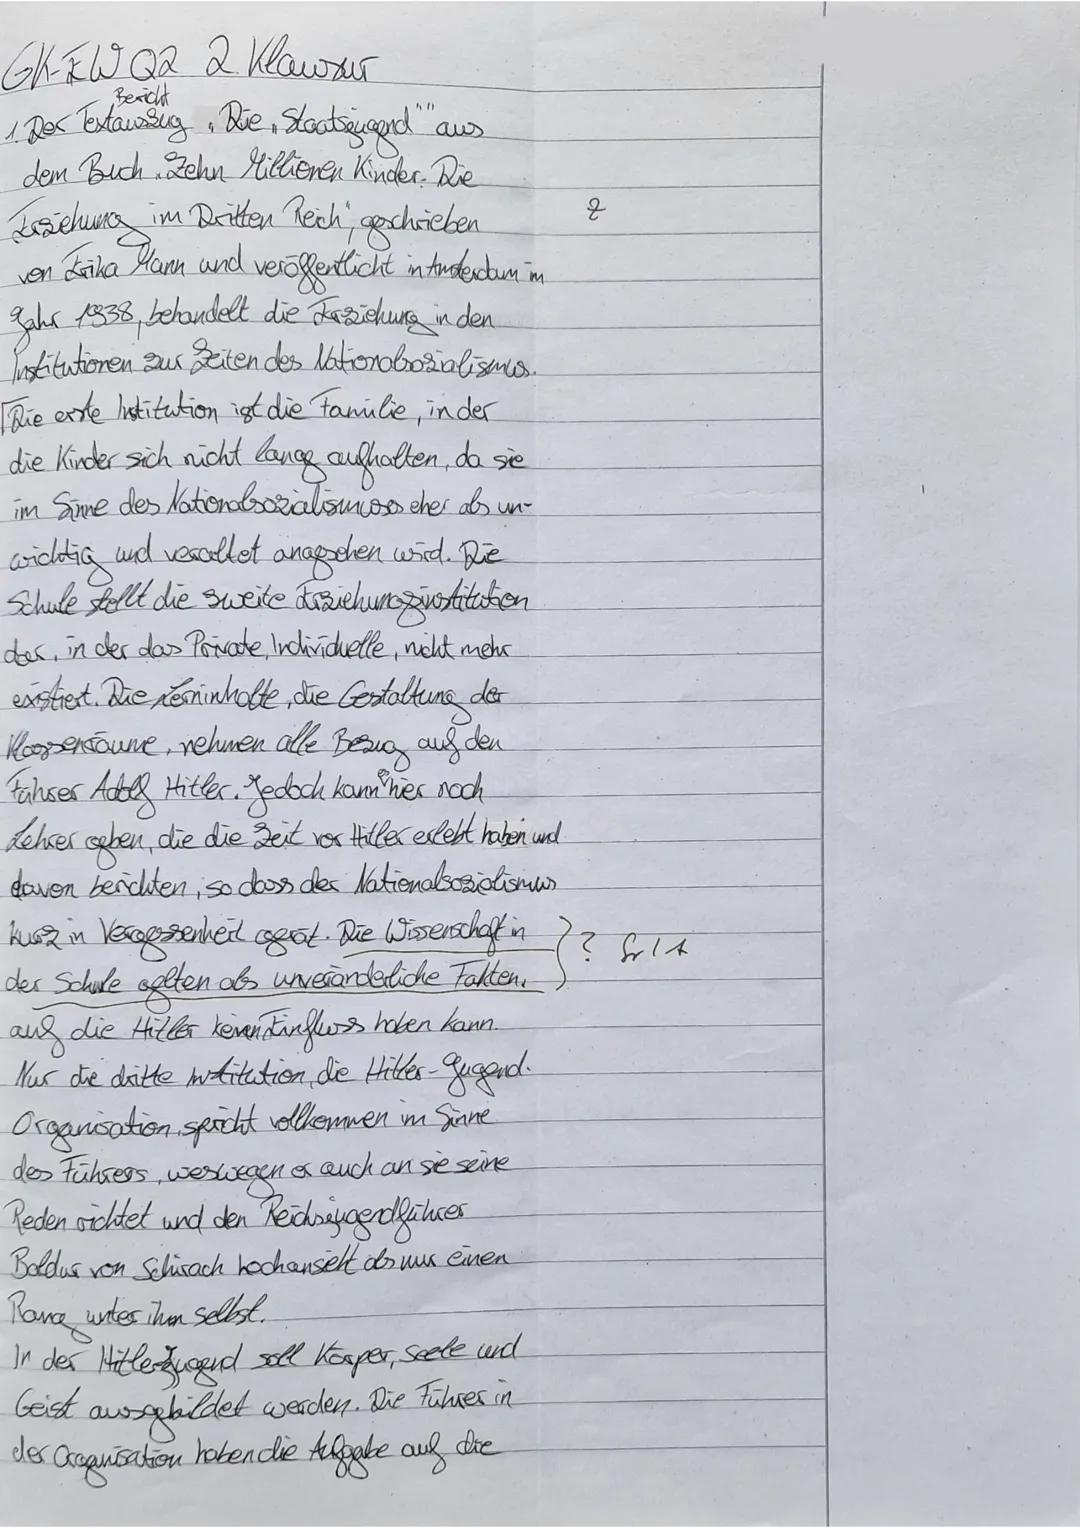 GK-EW Q2 2. Klausur
Bericht
1. Der Textauszug „Die „Staatsjugend"" aus
dem Buch „Zehn Millionen Kinder. Die
Erziehung im Dritten Reich", geschrieben
Z
von Erika Mann und veröffentlicht in Amsterdam im
Jahr 1938, behandelt die Erziehung in den
Institutionen zur Zeiten des Nationalsozialismus.
Die erste Institution ist die Familie, in der
die Kinder sich nicht lange aufhalten, da sie
im Sinne des Nationalsozialismuses eher als un-
wichtig und veraltet angesehen wird. Die
Schule stellt die zweite Erziehungsinstitution
dar, in der das Private, Individuelle, nicht mehr
existiert. Die Lerninhalte, die Gestaltung der
Klassenräume, nehmen alle Bezug auf den
Führer Adolf Hitler. Jedoch kann es hier noch
Lehrer geben, die die Zeit vor Hitler erlebt haben und
davon berichten, so dass der Nationalsozialismus
kurz in Vergessenheit gerät. Die Wissenschaft in
? Gr/A
der Schule gelten als unveränderliche Fakten,
auf die Hitler keinen Einfluss haben kann.
Nur die dritte Institution, die Hitler-Jugend-
Organisation, spricht vollkommen im Sinne
des Führers, weswegen er auch an sie seine
Reden richtet und den Reichsjugendführer
Baldur von Schirach hochansieht als nur einen
Rang unter ihm selbst.
In der Hitlerjugend soll Körper, Seele und
Geist ausgebildet werden. Die Führer in
der Organisation haben die Aufgabe auf die